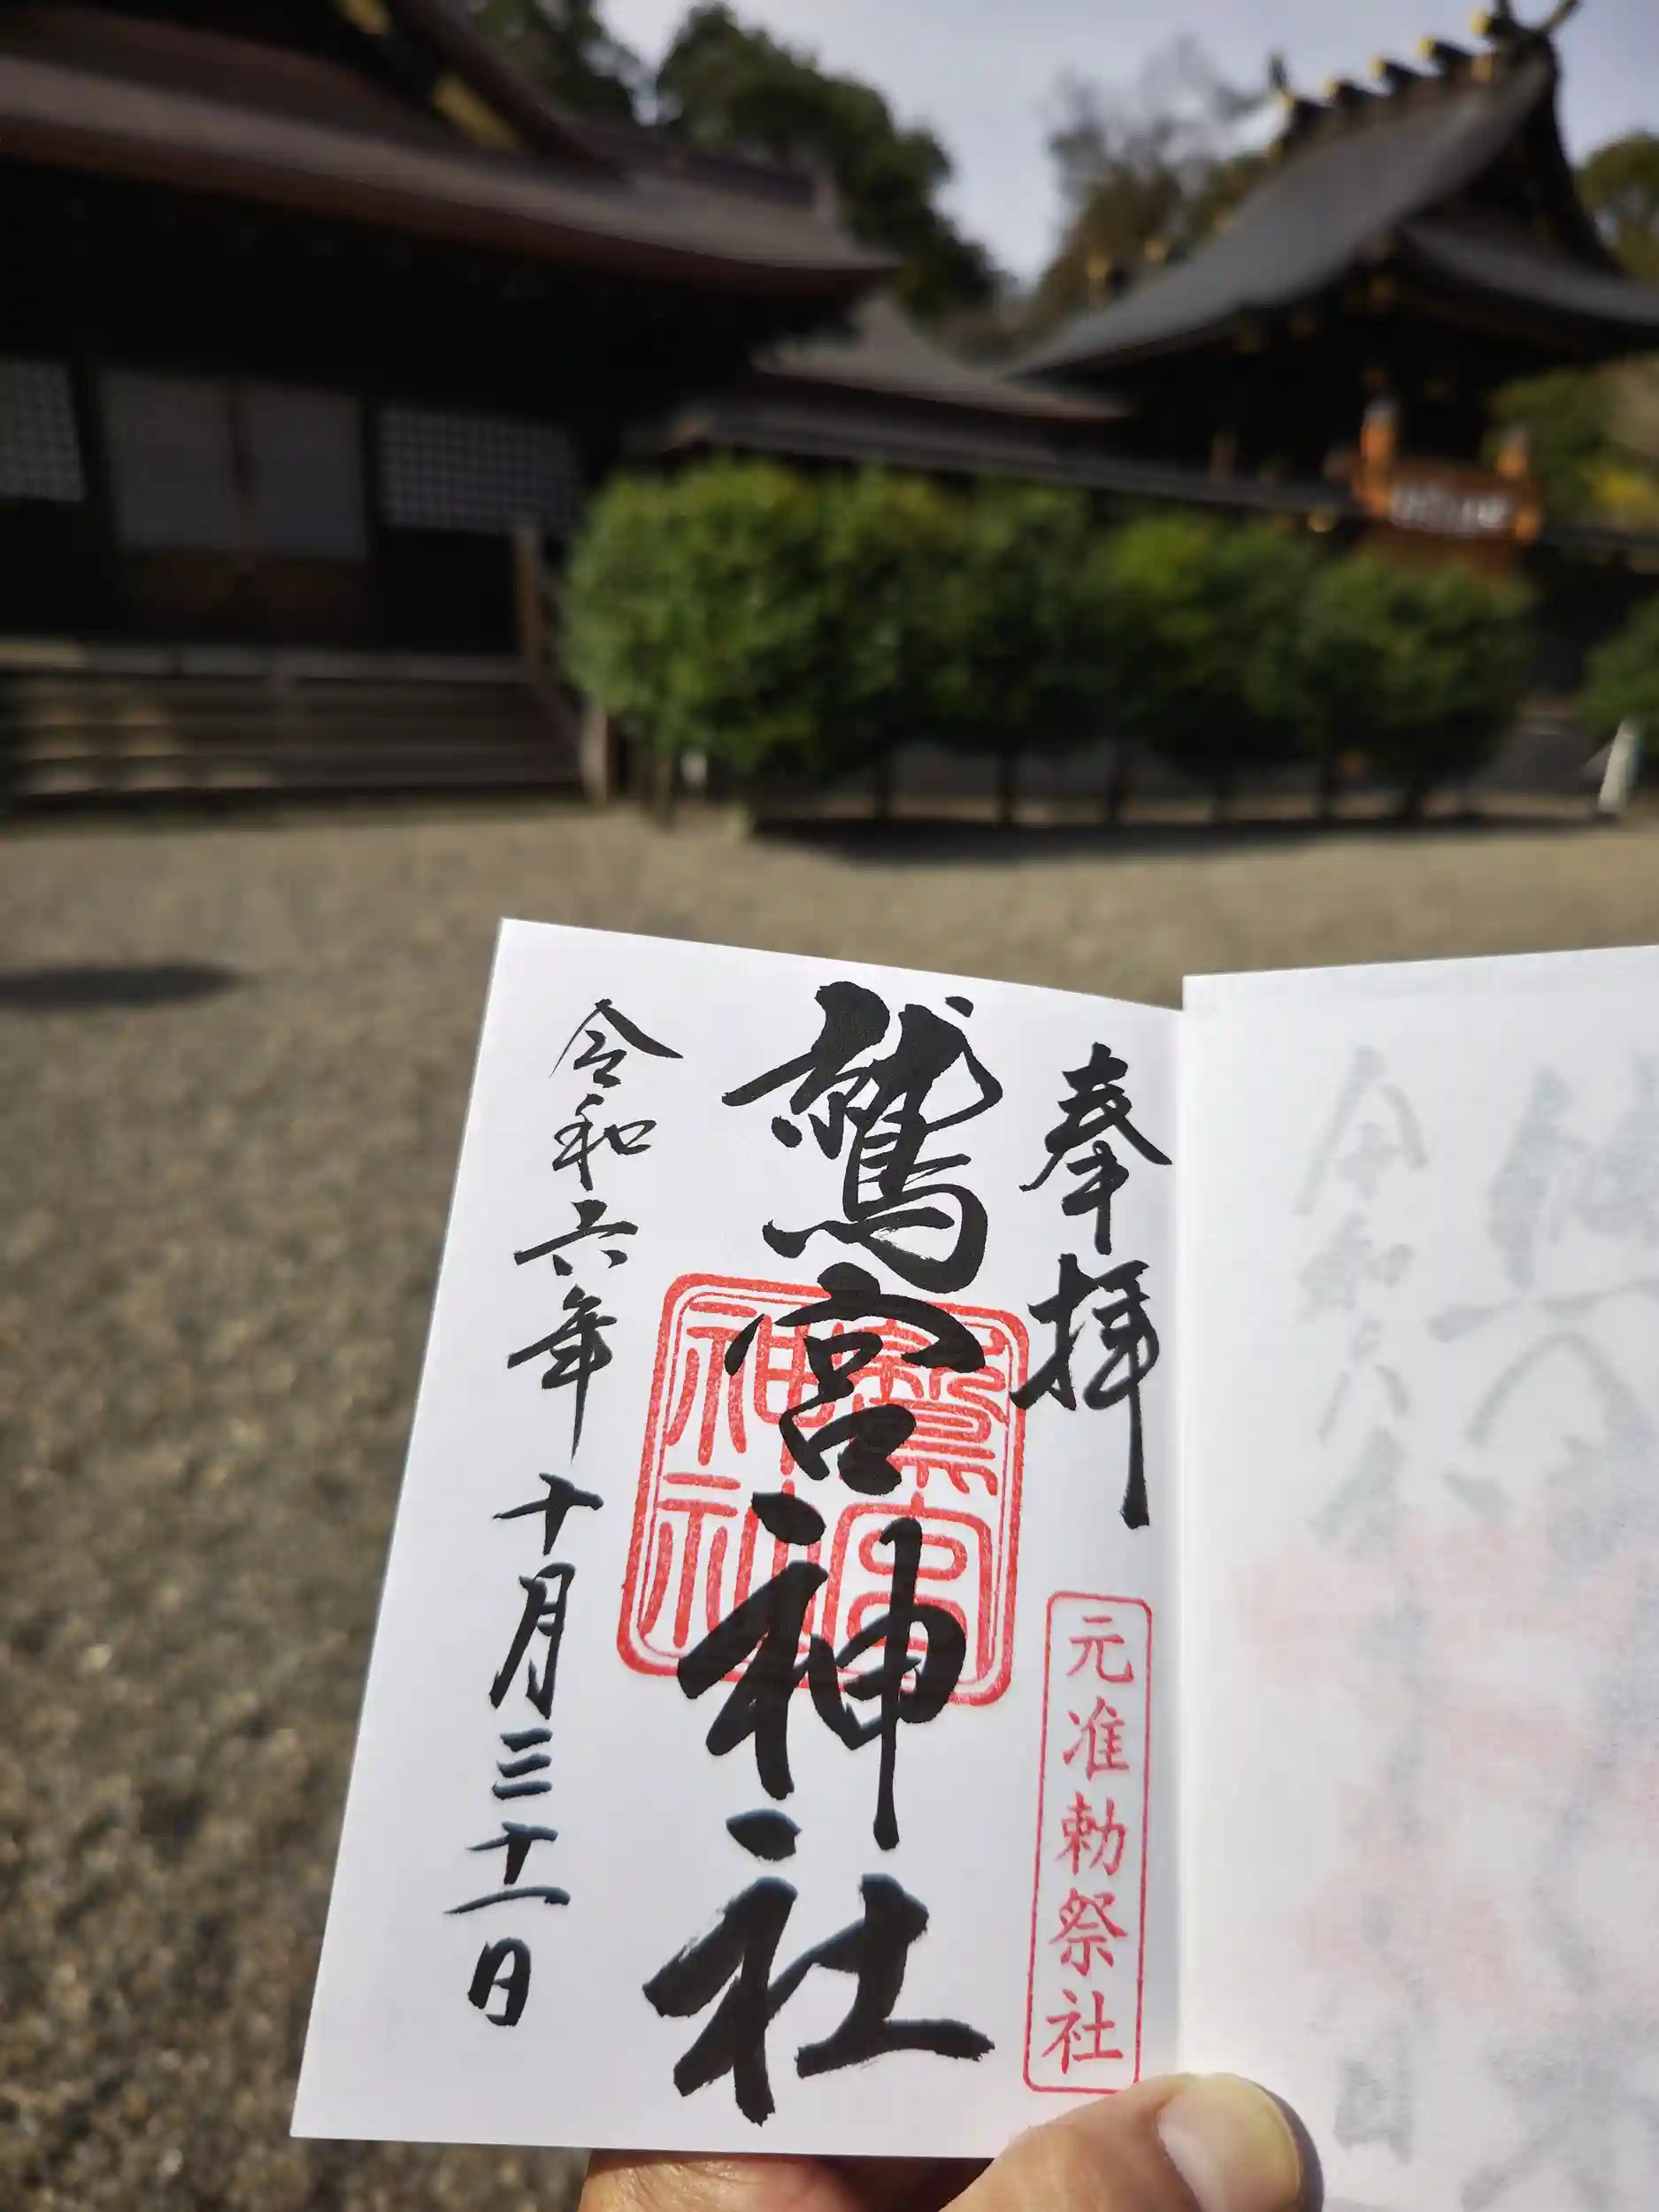 奉拝
元准勅祭社
鷲宮神社
鷲宮神社
令和六年十月三十一日